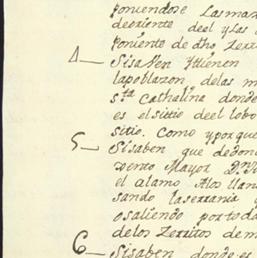 poniendose Las mar
deoriente deel y Las
poniente de dho Zerrit
4 — Sisaven ytienen
lapoblazon, de las m
sta Cathalina donde
es el sitio de el lobo
sitio. como y porque
5 — Sisaben que de don
xento Mayor Dn
el alamo Alos llan
sando laserrania y
osaliendo portoda
delos Zerritos de m
6 — Sisaben donde es